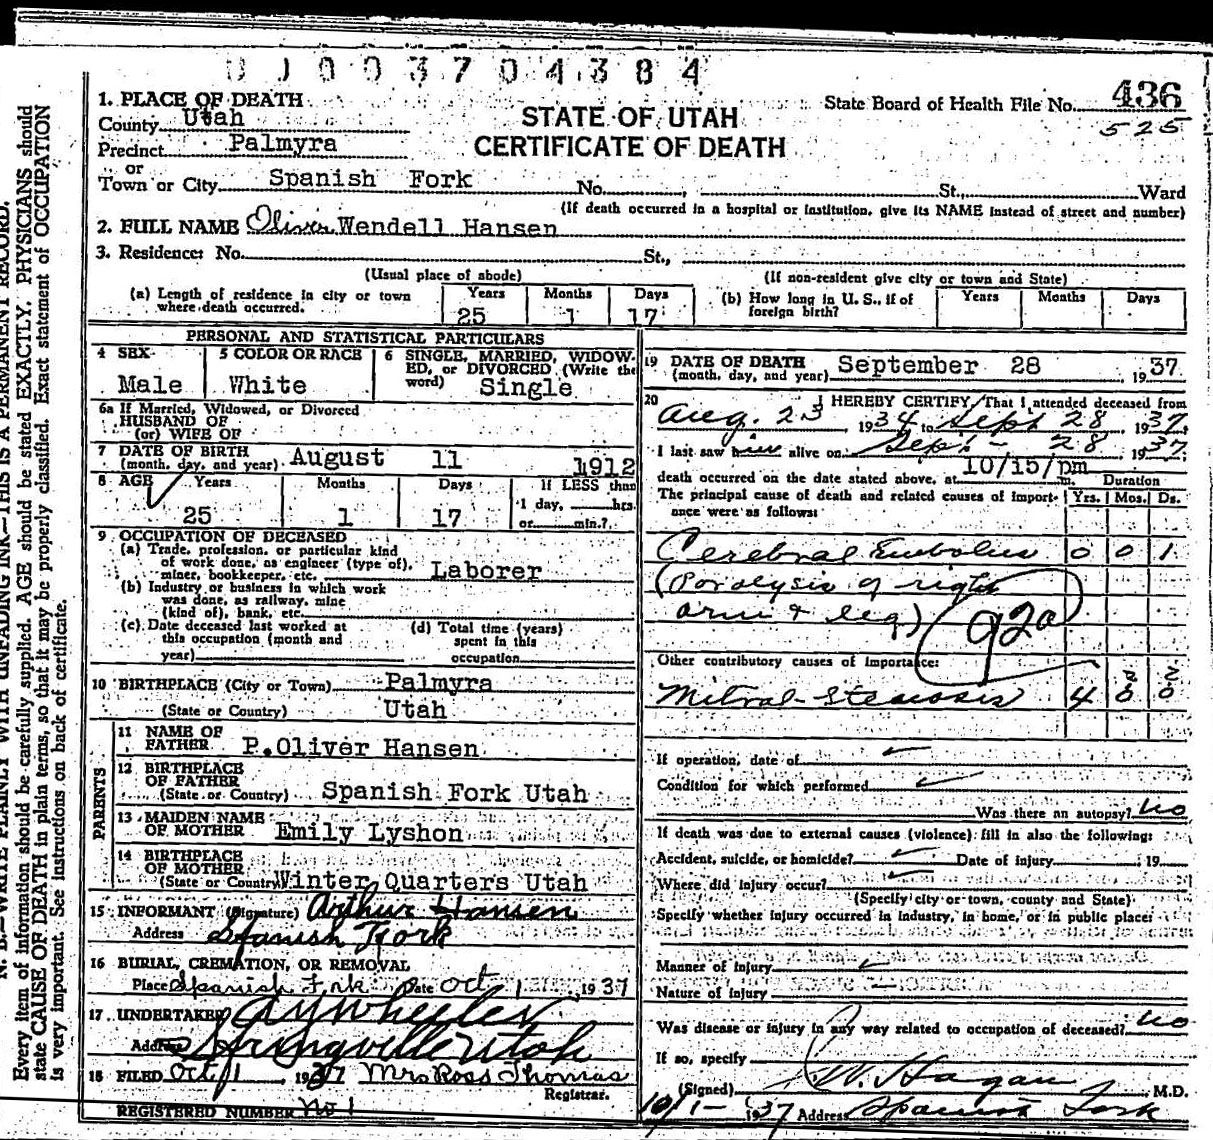 0 0 0 3 7 0 4 3 8 4
1. PLACE OF DEATH
County Utah
Precinct Palmyra
or
Town or City Spanish Fork No. St., Ward
STATE OF UTAH
CERTIFICATE OF DEATH
State Board of Health File No. 436
525
(If death occurred in a hospital or institution, give its NAME instead of street and number)
2. FULL NAME Oliver Wendell Hansen
3. Residence: No. St.,
(Usual place of abode) (If non-resident give city or town and State)
(a) Length of residence in city or town where death occurred. Years 25 Months 1 Days 17
(b) How long in U. S., if of foreign birth? Years Months Days
PERSONAL AND STATISTICAL PARTICULARS
4 SEX Male
5 COLOR OR RACE White
6 SINGLE, MARRIED, WIDOWED, or DIVORCED (Write the word) Single
6a If Married, Widowed, or Divorced
HUSBAND OF
(or) WIFE OF
7 DATE OF BIRTH
(month, day, and year) August 11 1912
8 AGE Years 25 Months 1 Days 17
If LESS than
1 day, hrs.
or min.?
9 OCCUPATION OF DECEASED
(a) Trade, profession, or particular kind
of work done, as engineer (type of),
miner, bookkeeper, etc. Laborer
(b) Industry or business in which work
was done, as railway, mine
(kind of), bank, etc.
(c) Date deceased last worked at
this occupation (month and
year)
(d) Total time (years)
spent in this
occupation
10 BIRTHPLACE (City or Town) Palmyra
(State or Country) Utah
PARENTS
11 NAME OF
FATHER P. Oliver Hansen
12 BIRTHPLACE
OF FATHER
(State or Country) Spanish Fork Utah
13 MAIDEN NAME
OF MOTHER Emily Lyshon
14 BIRTHPLACE
OF MOTHER
(State or Country) Winter Quarters Utah
15 INFORMANT (Signature) Arthur Hansen
Address Spanish Fork
16 BURIAL, CREMATION, OR REMOVAL
Place Spanish Fork Date Oct 1 1937
17 UNDERTAKER A Y Wheeler
Address Springville Utah
18 FILED Oct 1 1937 Mrs Ross Thomas
Registrar.
REGISTERED NUMBER No 1
19 DATE OF DEATH
(month, day, and year) September 28 1937
20 I HEREBY CERTIFY, That I attended deceased from
Aug. 23, 1934 to Sept 28, 1937,
I last saw him alive on Sept - 28 1937
death occurred on the date stated above, at 10/15/pm m.
Duration
The principal cause of death and related causes of importance were as follows: Yrs. Mos. Ds.
Cerebral Embolus 0 0 1
(Paralysis of right
arm & leg) 92a
Other contributory causes of importance:
Mitral Stenosis 4
If operation, date of
Condition for which performed
Was there an autopsy? no
If death was due to external causes (violence) fill in also the following:
Accident, suicide, or homicide? Date of injury 19
Where did injury occur?
(Specify city or town, county and State)
Specify whether injury occurred in industry, in home, or in public place:
Manner of injury
Nature of injury
Was disease or injury in any way related to occupation of deceased? no
If so, specify
(Signed) W. Hagan M.D.
10/1- 1937 Address Spanish Fork
N. B.—WRITE PLAINLY WITH UNFADING INK—THIS IS A PERMANENT RECORD.
Every item of information should be carefully supplied. AGE should be stated EXACTLY. PHYSICIANS should
state CAUSE OF DEATH in plain terms, so that it may be properly classified. Exact statement of OCCUPATION
is very important. See instructions on back of certificate.